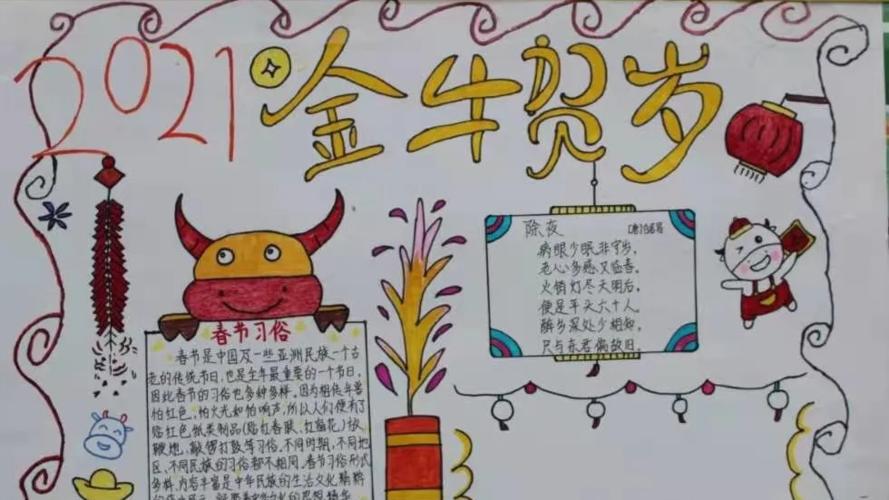 2021
金牛贺岁
除夜 [唐]白居易
病眼少眠非守岁，
老心多感又临春。
火销灯尽天明后，
便是平头六十人。
醉乡深处少相知，
只与东君偏故旧。
春节习俗
春节是中国及一些亚洲民族一个古
老的传统节日，也是全年最重要的一个节日，
因此春节的习俗也多种多样。因为相传年兽
怕红色、怕火光和怕响声，所以人们便有了
贴红色纸类制品(贴红春联、红窗花)放
鞭炮、敲锣打鼓等习俗，不同时期，不同地
区、不同民族的习俗都不相同。春节习俗形式
多样、内容丰富是中华民族的生活文化精粹